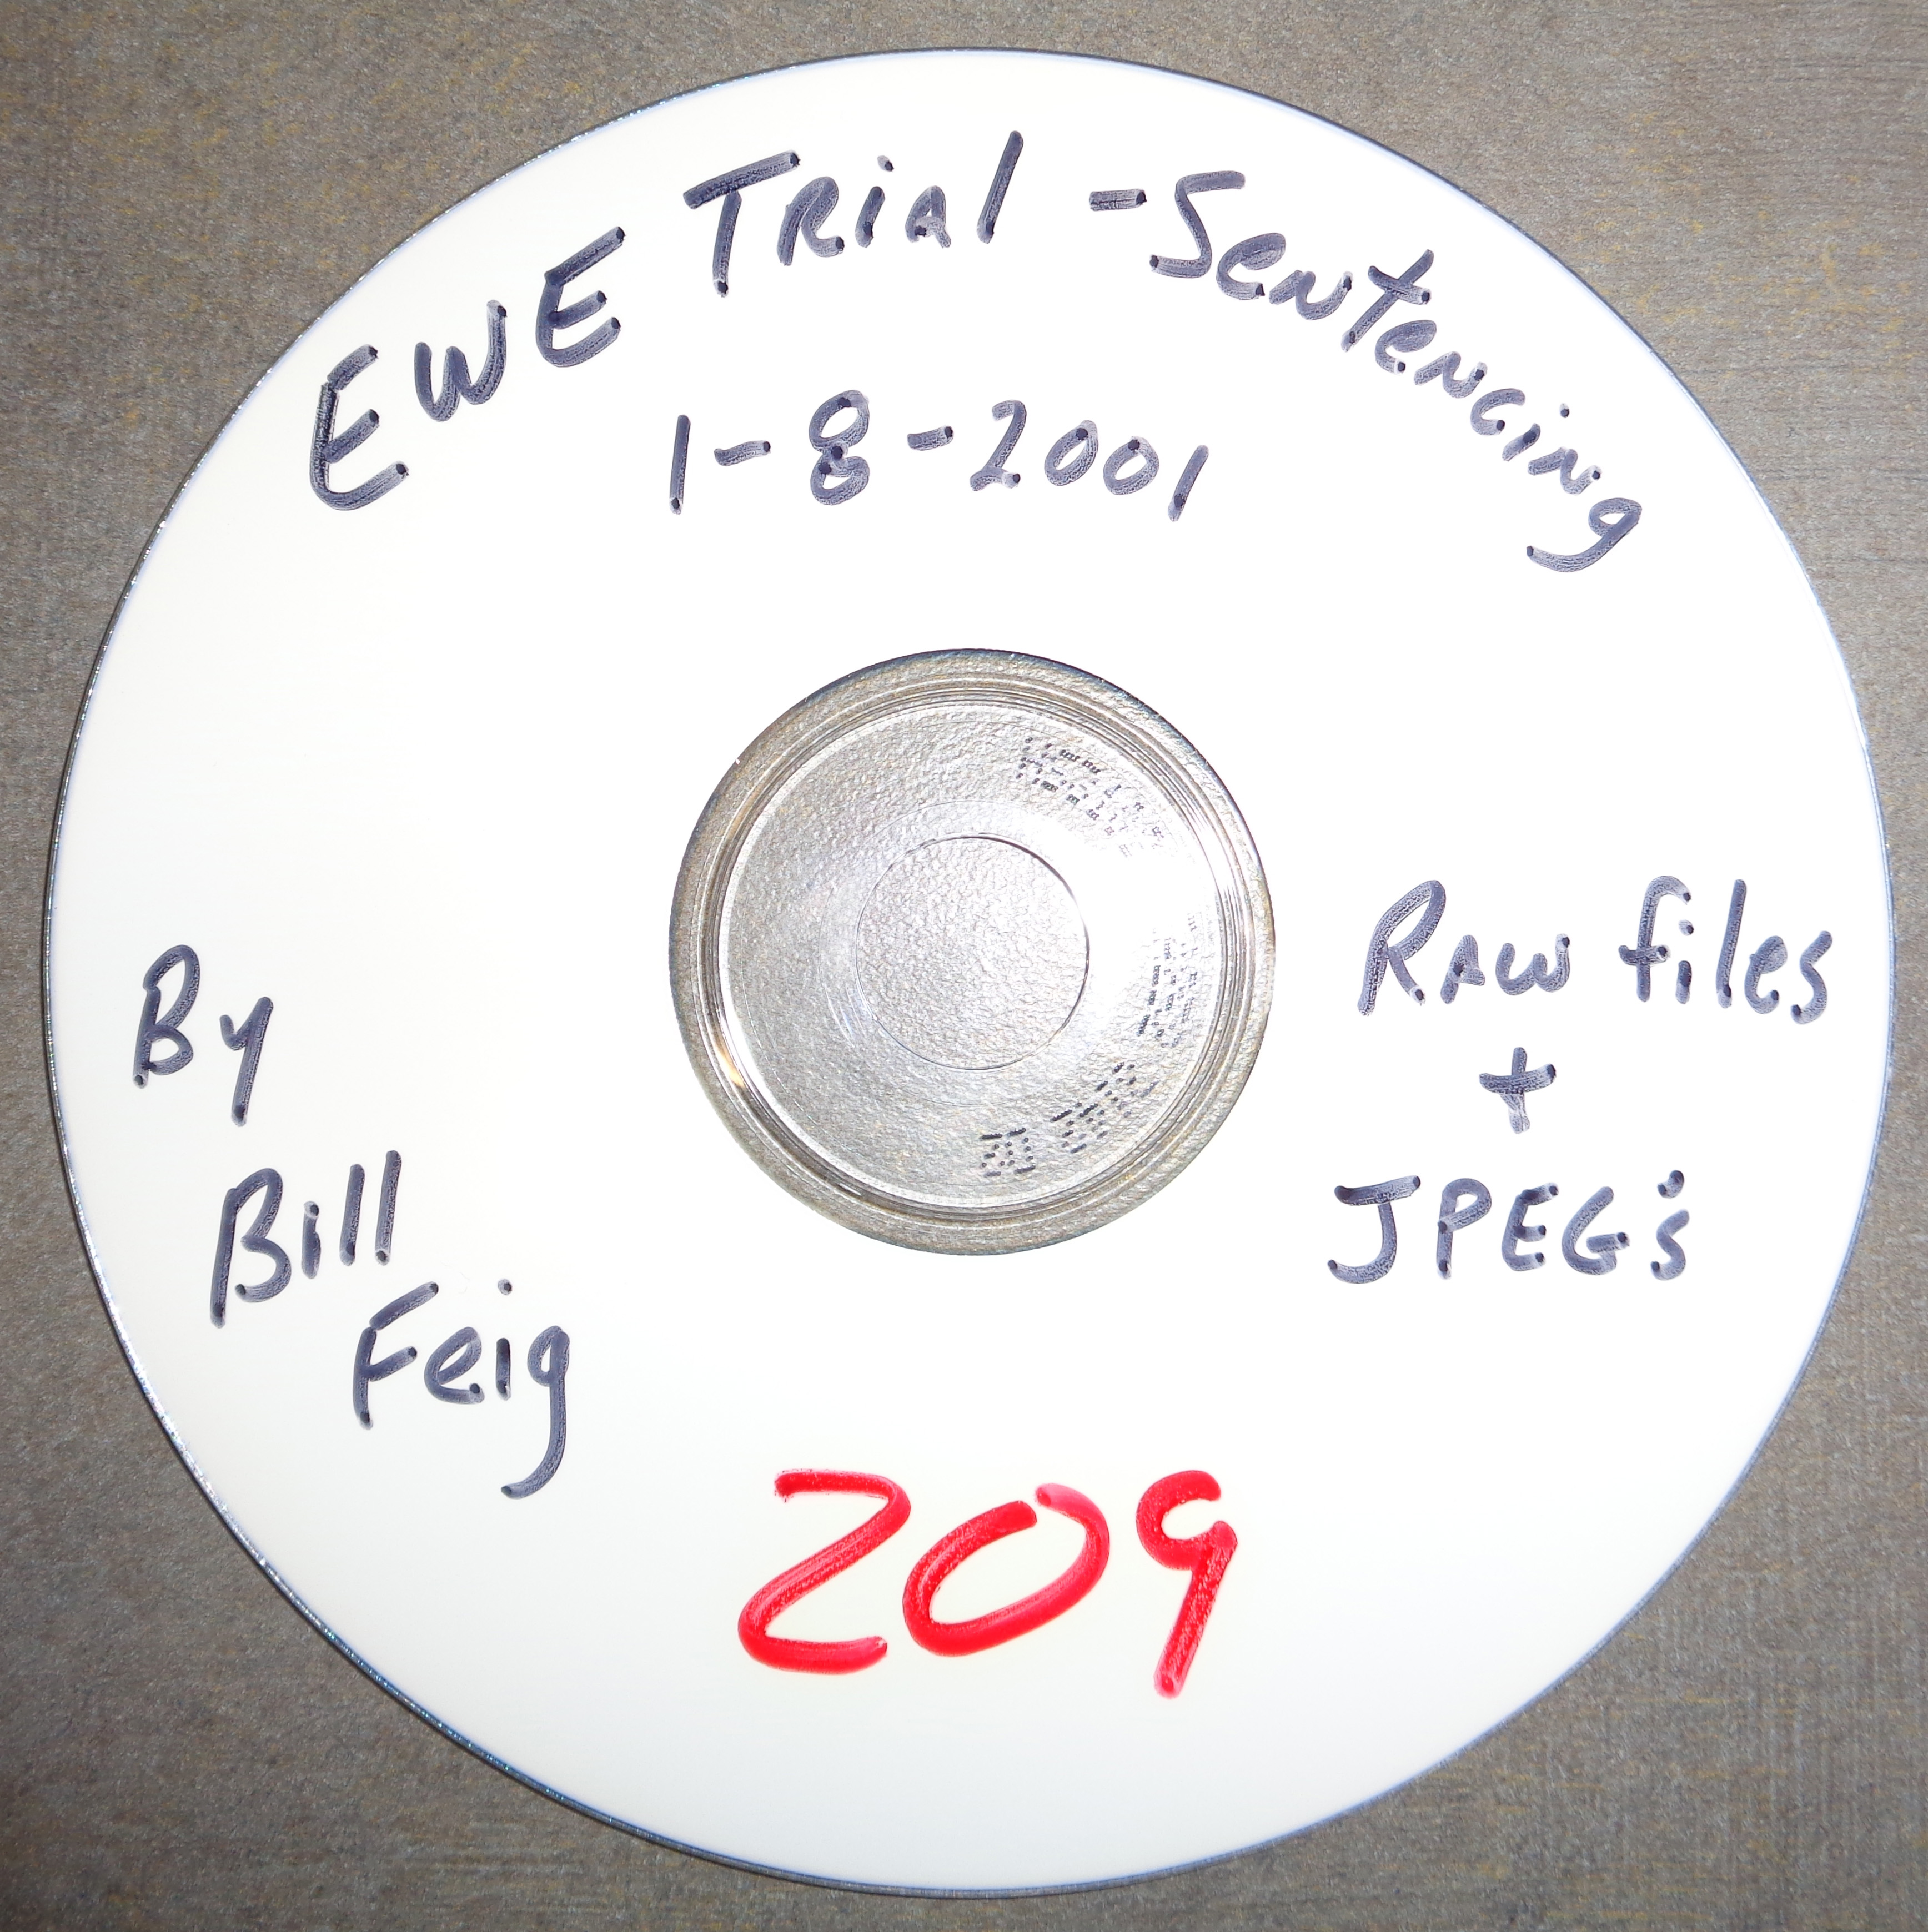 EWE Trial - Sentencing
1-8-2001
By
Bill
Feig
Raw files
+
JPEG's
209